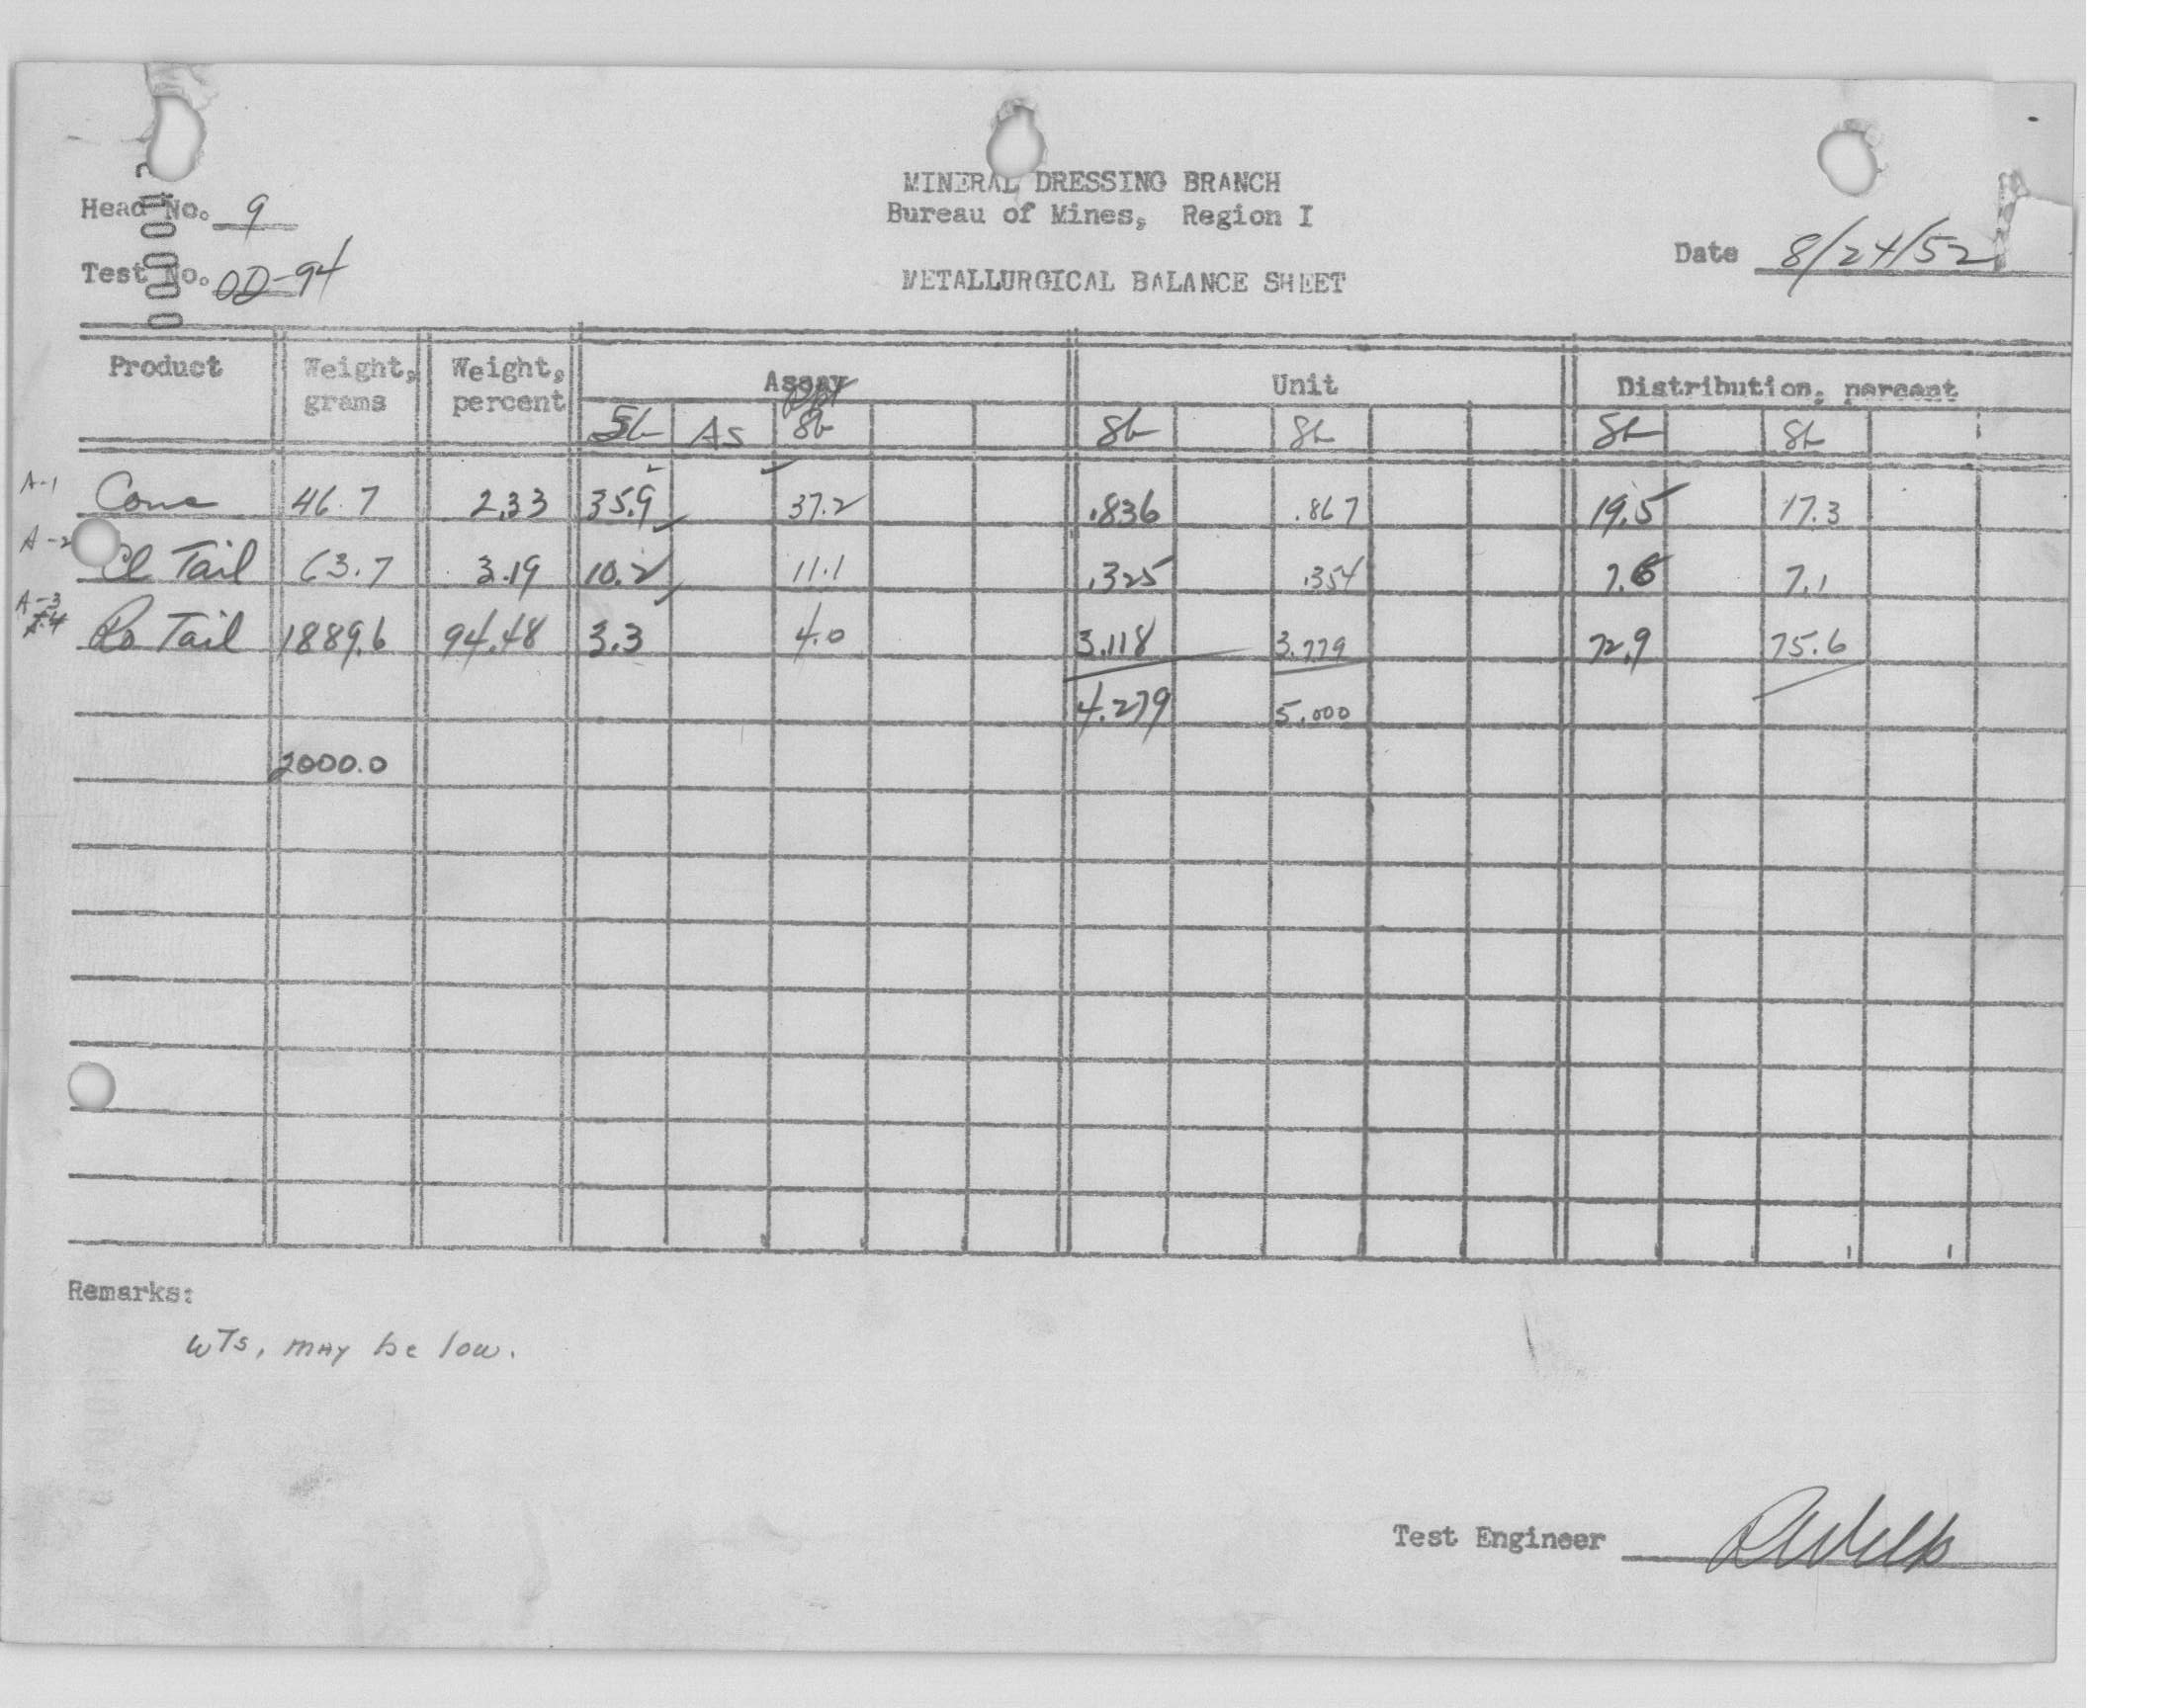 MINERAL DRESSING BRANCH
Head No. 9
Bureau of Mines, Region I
Test No. OD-94
METALLURGICAL BALANCE SHEET
Date 8/24/52
Product Weight, grams Weight, percent Assay Unit Distribution, percent
Sb As Sb Sb Sb Sb Sb
A-1 Conc 46.7 2.33 35.9 37.2 .836 .867 19.5 17.3
A-2 Cl Tail 63.7 3.19 10.2 11.1 .325 .354 7.6 7.1
A-3 Ro Tail 1889.6 94.48 3.3 4.0 3.118 3.779 72.9 75.6
4.279 5.000
2000.0
Remarks:
WTs, may be low.
Test Engineer